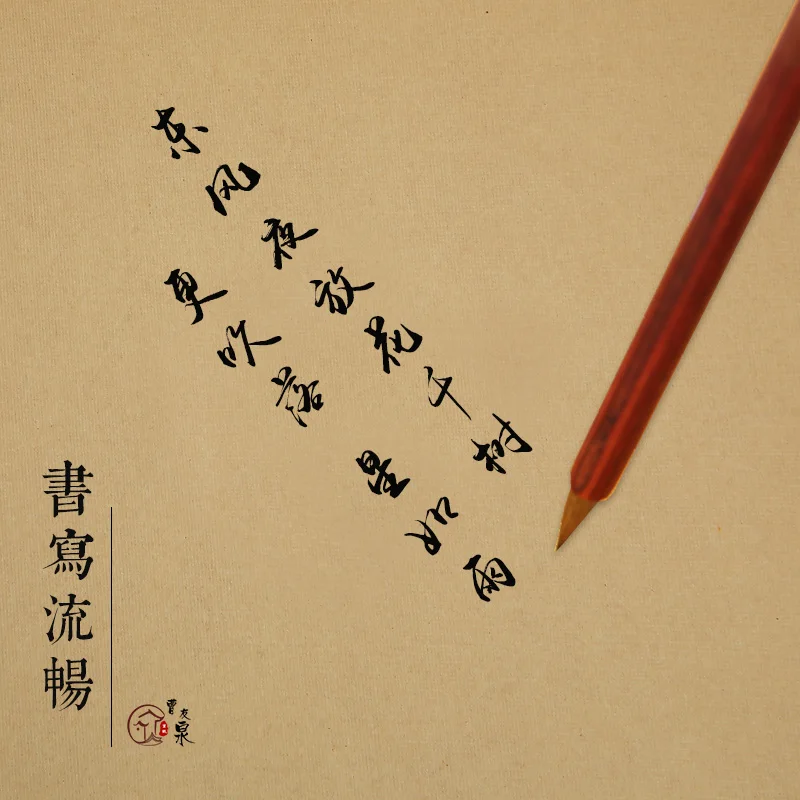 东风夜放花千树
更吹落
星如雨
書寫流暢
曹友泉